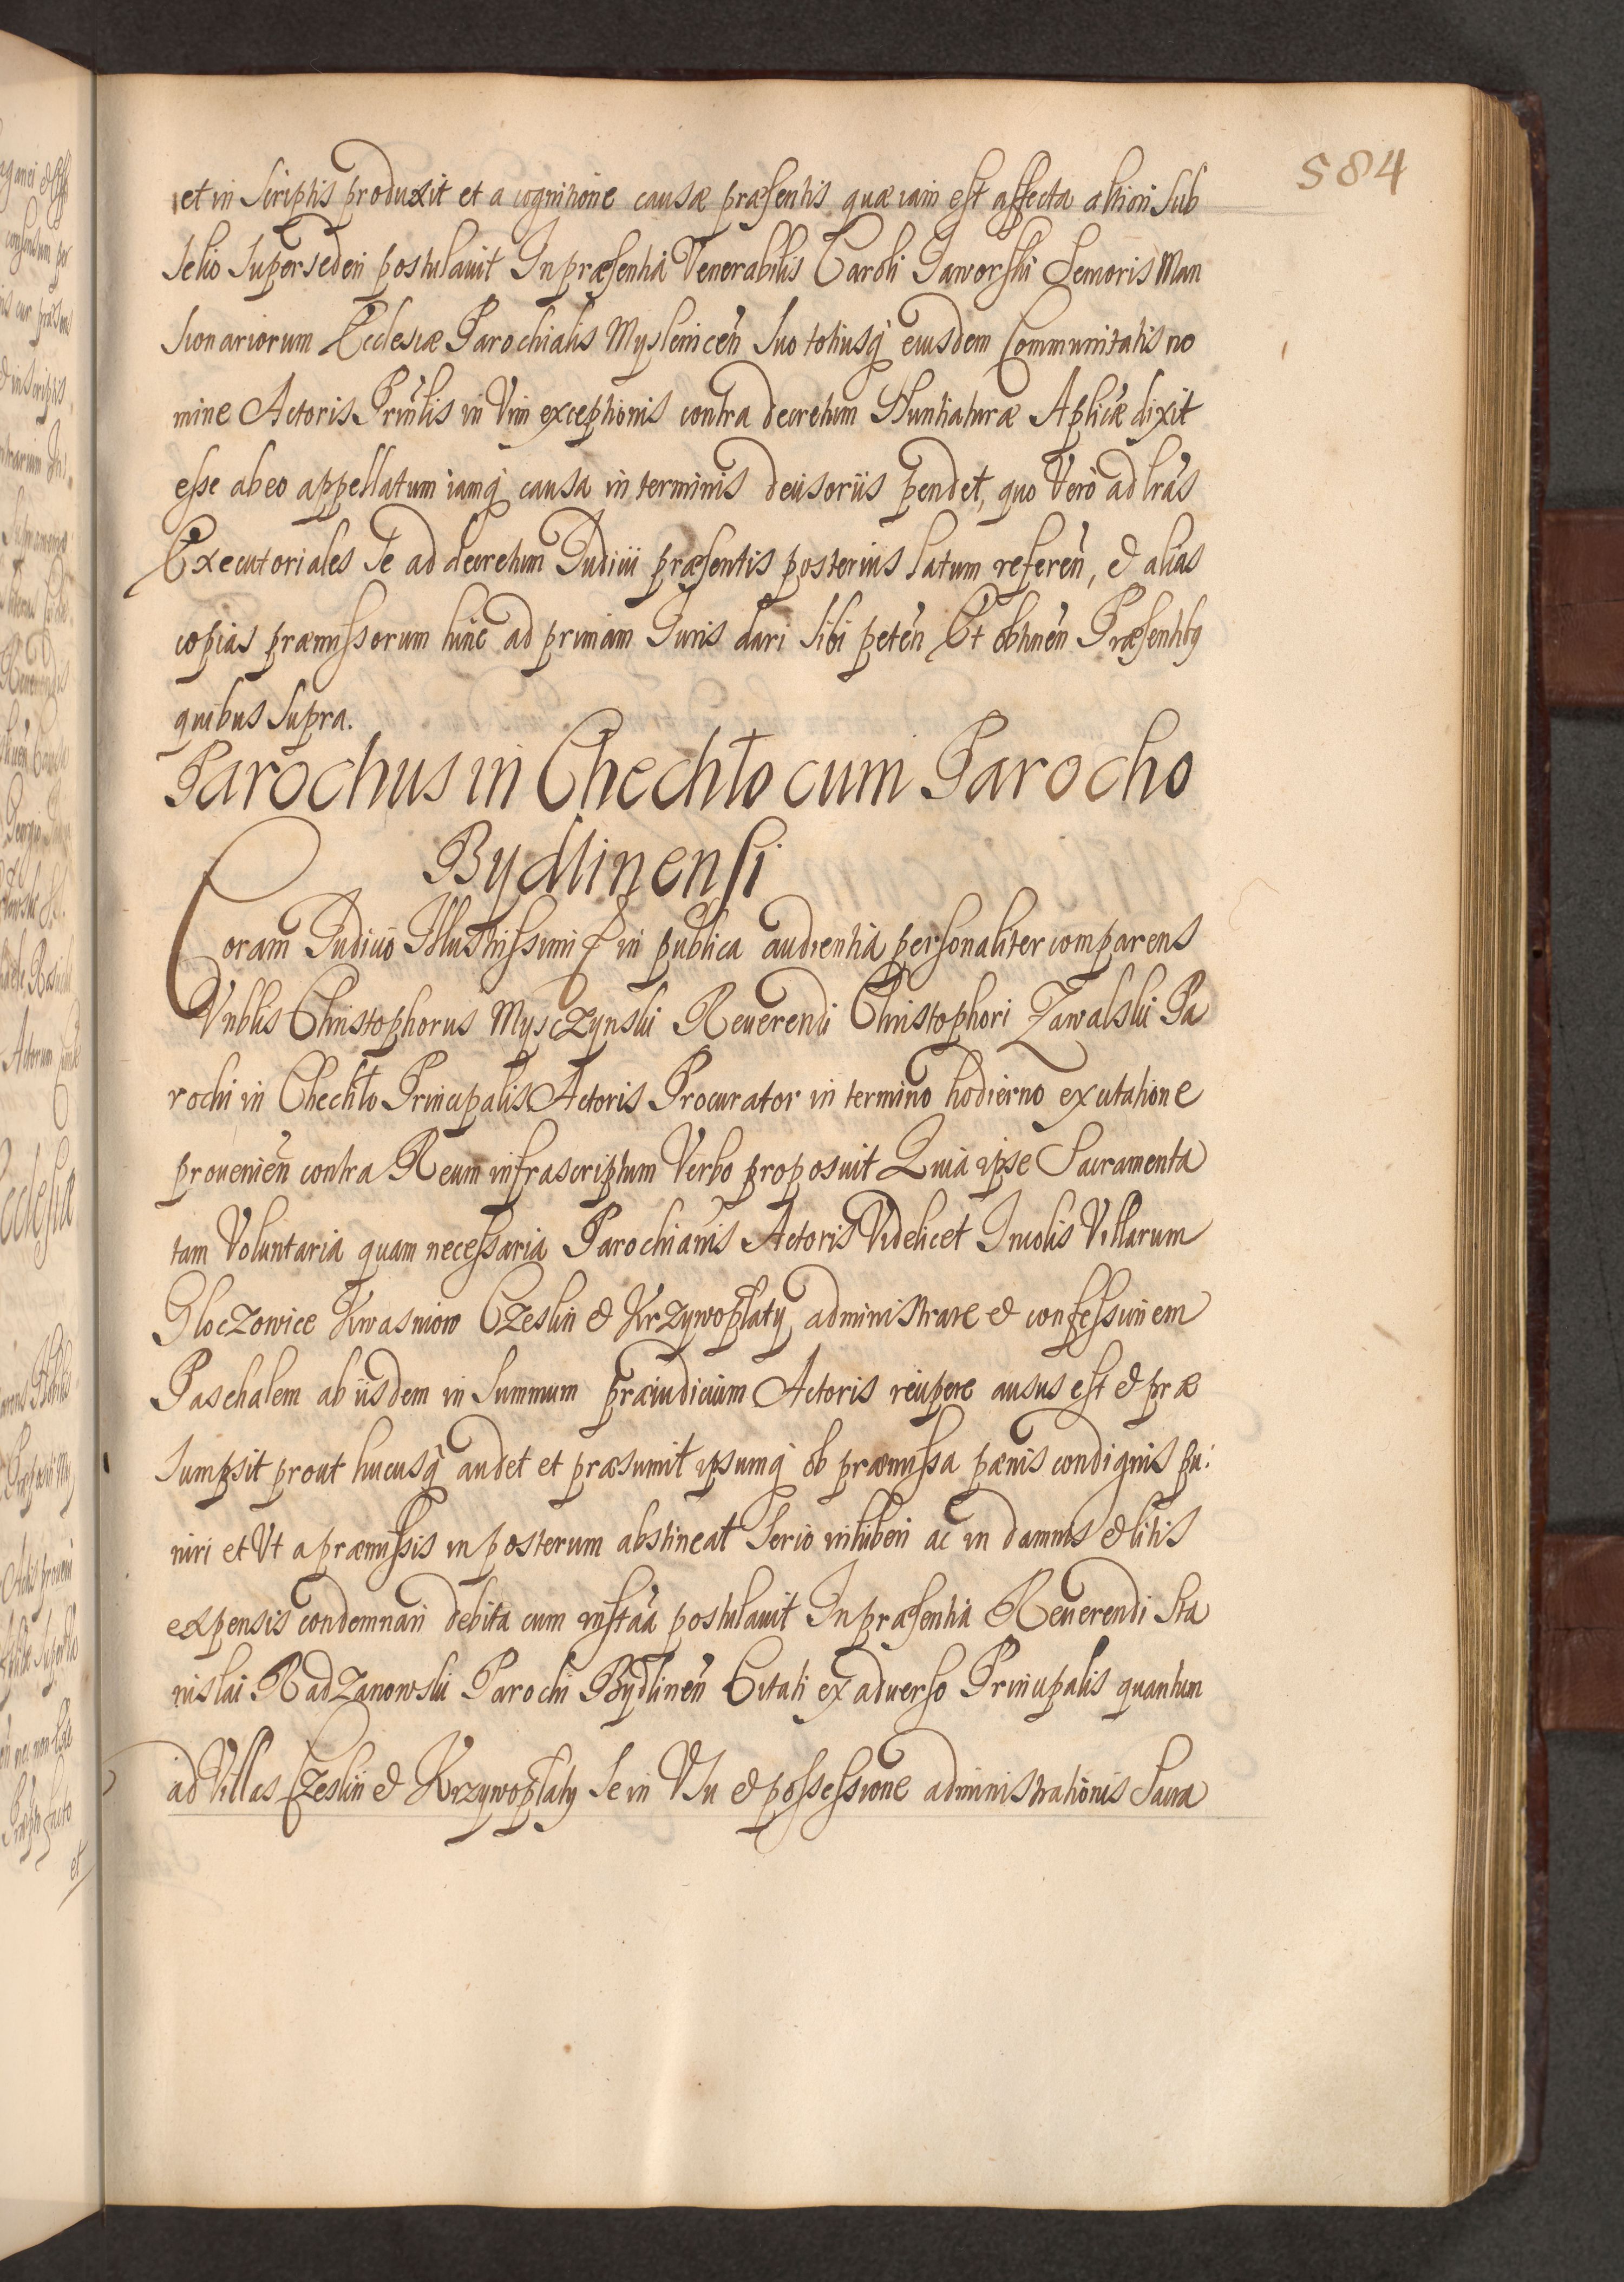 584
et in Scriptis produxit et a cognitione causæ præsentis quæ iam est affecta altiori Sub
Selio Supersederi postulauit In præsentia Venerabilis Caroli Jaworski Senioris Man
Sionariorum Ecclesiæ Parochialis Myslenicen̄ Suo totiusq̨ eiusdem Communitatis no
mine Actoris Prin̄lis in Vim exceptionis contra decretum Nuntiaturæ Ap̄licæ dixit
esse ab eo appellatum iamq̨ causa in terminis decisoriis pendet, quo Vero ad lr̄as
Executoriales Se ad decretum Judicii præsentis posterius latum referen̄, & alias
copias præmissorum hinc ad primam Juris dari Sibi peten̄ Et obtinen̄ Præsentibꝰ
quibus Supra.
Parochus in Chechło cum Parocho
Bydlinensi
Coram Judicio Illustrissimi & in publica audientia personaliter comparens
Vnblis Christophorus Mysczynski Reuerendi Christophori Zawalski Pa
rochi in Chechło Principalis Actoris Procurator in termino hodierno ex citatione
prouenien̄ contra Reum infrascriptum Verbo proposuit Quia ipse Sacramenta
tam Voluntaria quam necessaria Parochianis Actoris Videlicet Incolis Villarum
Gloczowice Kwasniow Czeslin & Krzywopłaty administrare & confessionem
Paschalem ab iisdem in Summum præiudicium Actoris recipere ausus est & præ
Sumpsit prout hucusq̨ audet et præsumit ipsumq̨ ob præmissa pænis condignis pu:
niri et Vt a præmissis in posterum abstineat Serio inhiberi ac in damnis & litis
expensis condemnari debita cum inst̄aa postulauit In præsentia Reuerendi Sta
nislai Radzanowski Parochi Bydlinen̄ Citati ex aduerso Principalis quantum
ad Villas Czeslin & Krzywopłaty Se in Vsu & possessione administrationis Sacra